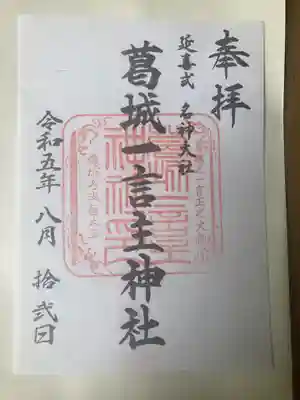 奉拝
延喜式 名神大社
葛城一言主神社
令和五年 八月 拾弐日